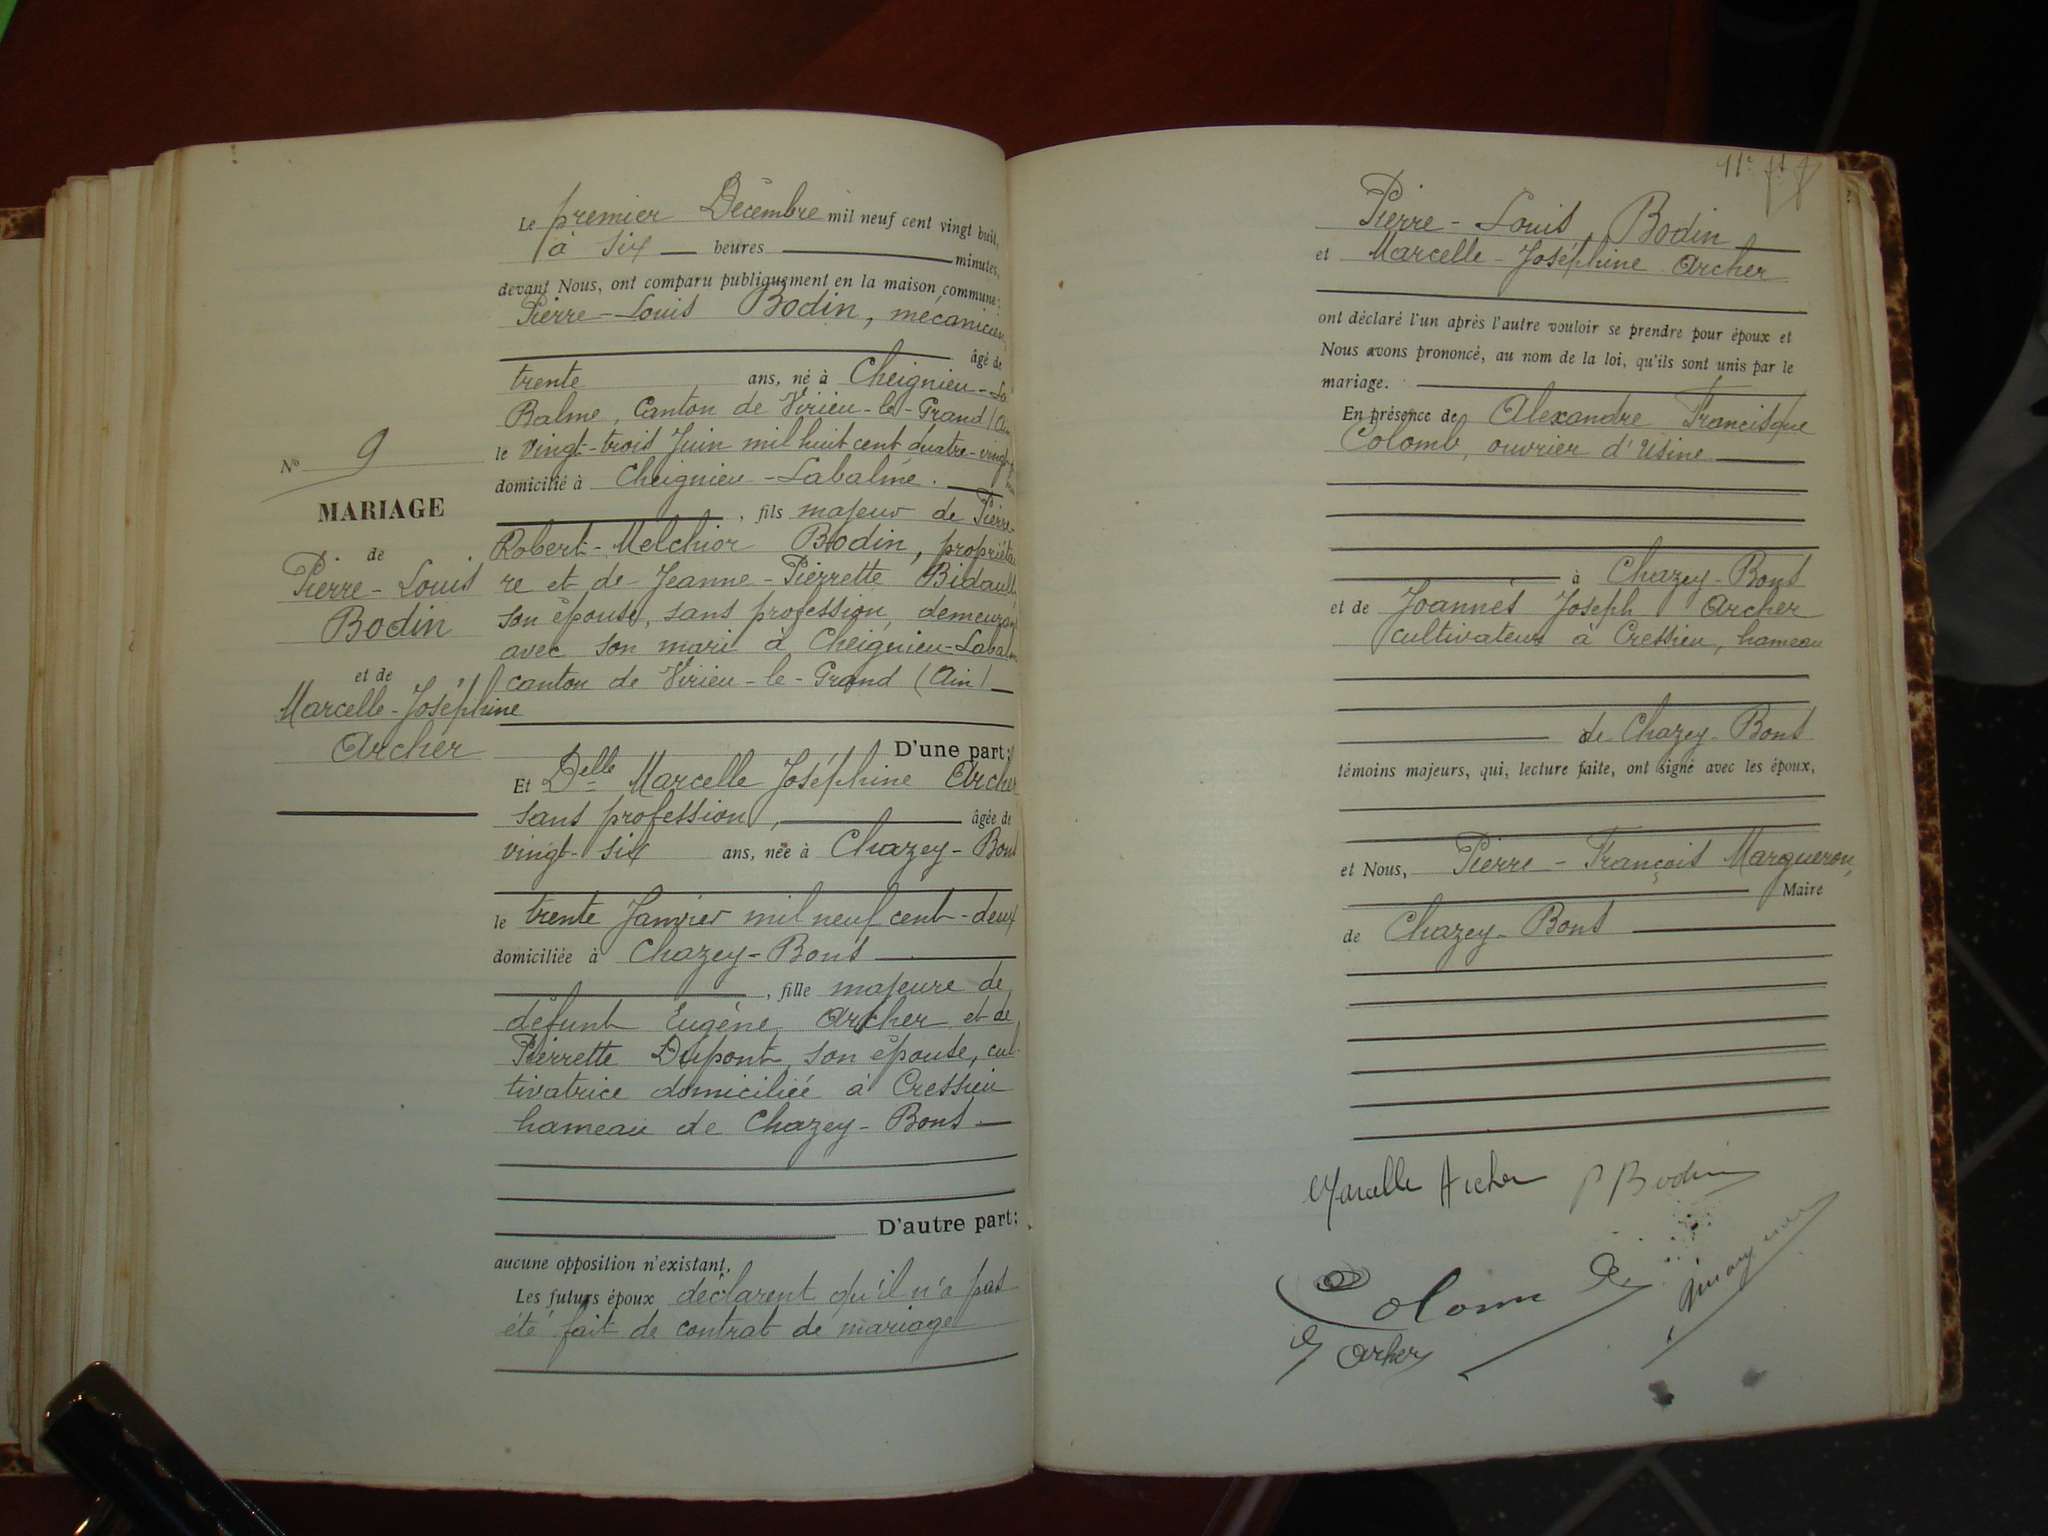 Le premier Décembre mil neuf cent vingt huit,
à six heures minutes,
devant Nous, ont comparu publiquement en la maison commune :
Pierre-Louis Bodin, mécanicien
âgé de
trente ans, né à Cheignieu-La
Balme, Canton de Virieu-le-Grand (Ain
le vingt-trois Juin mil huit cent quatre-vingt
domicilié à Cheignieu-Labalme.
, fils majeur de Pierre-
Robert-Melchior Bodin, propriétai
re et de Jeanne-Pierrette Bidault,
son épouse, sans profession, demeurant
avec son mari à Cheignieu-Labalme
canton de Virieu-le-Grand (Ain)
D'une part;
Et Delle Marcelle Joséphine Archer
sans profession, âgée de
vingt-six ans, née à Chazey-Bons
le trente Janvier mil neuf cent-deux
domiciliée à Chazey-Bons
, fille majeure de
défunt Eugène Archer et de
Pierrette Dupont, son épouse, cul-
tivatrice domiciliée à Cressieu
hameau de Chazey-Bons
D'autre part;
aucune opposition n'existant,
Les futurs époux déclarent qu'il n'a pas
été fait de contrat de mariage
No 9
MARIAGE
de
Pierre-Louis
Bodin
et de
Marcelle-Joséphine
Archer
11e
Pierre-Louis Bodin
et Marcelle-Joséphine Archer
ont déclaré l'un après l'autre vouloir se prendre pour époux et
Nous avons prononcé, au nom de la loi, qu'ils sont unis par le
mariage.
En présence de Alexandre Francisque
Colomb, ouvrier d'Usine
à Chazey-Bons
et de Joannès Joseph Archer
cultivateur à Cressieu, hameau
de Chazey-Bons
témoins majeurs, qui, lecture faite, ont signé avec les époux,
et Nous, Pierre-François Margueron,
Maire
de Chazey-Bons
Marcelle Archer P Bodin
Colomb
Archer